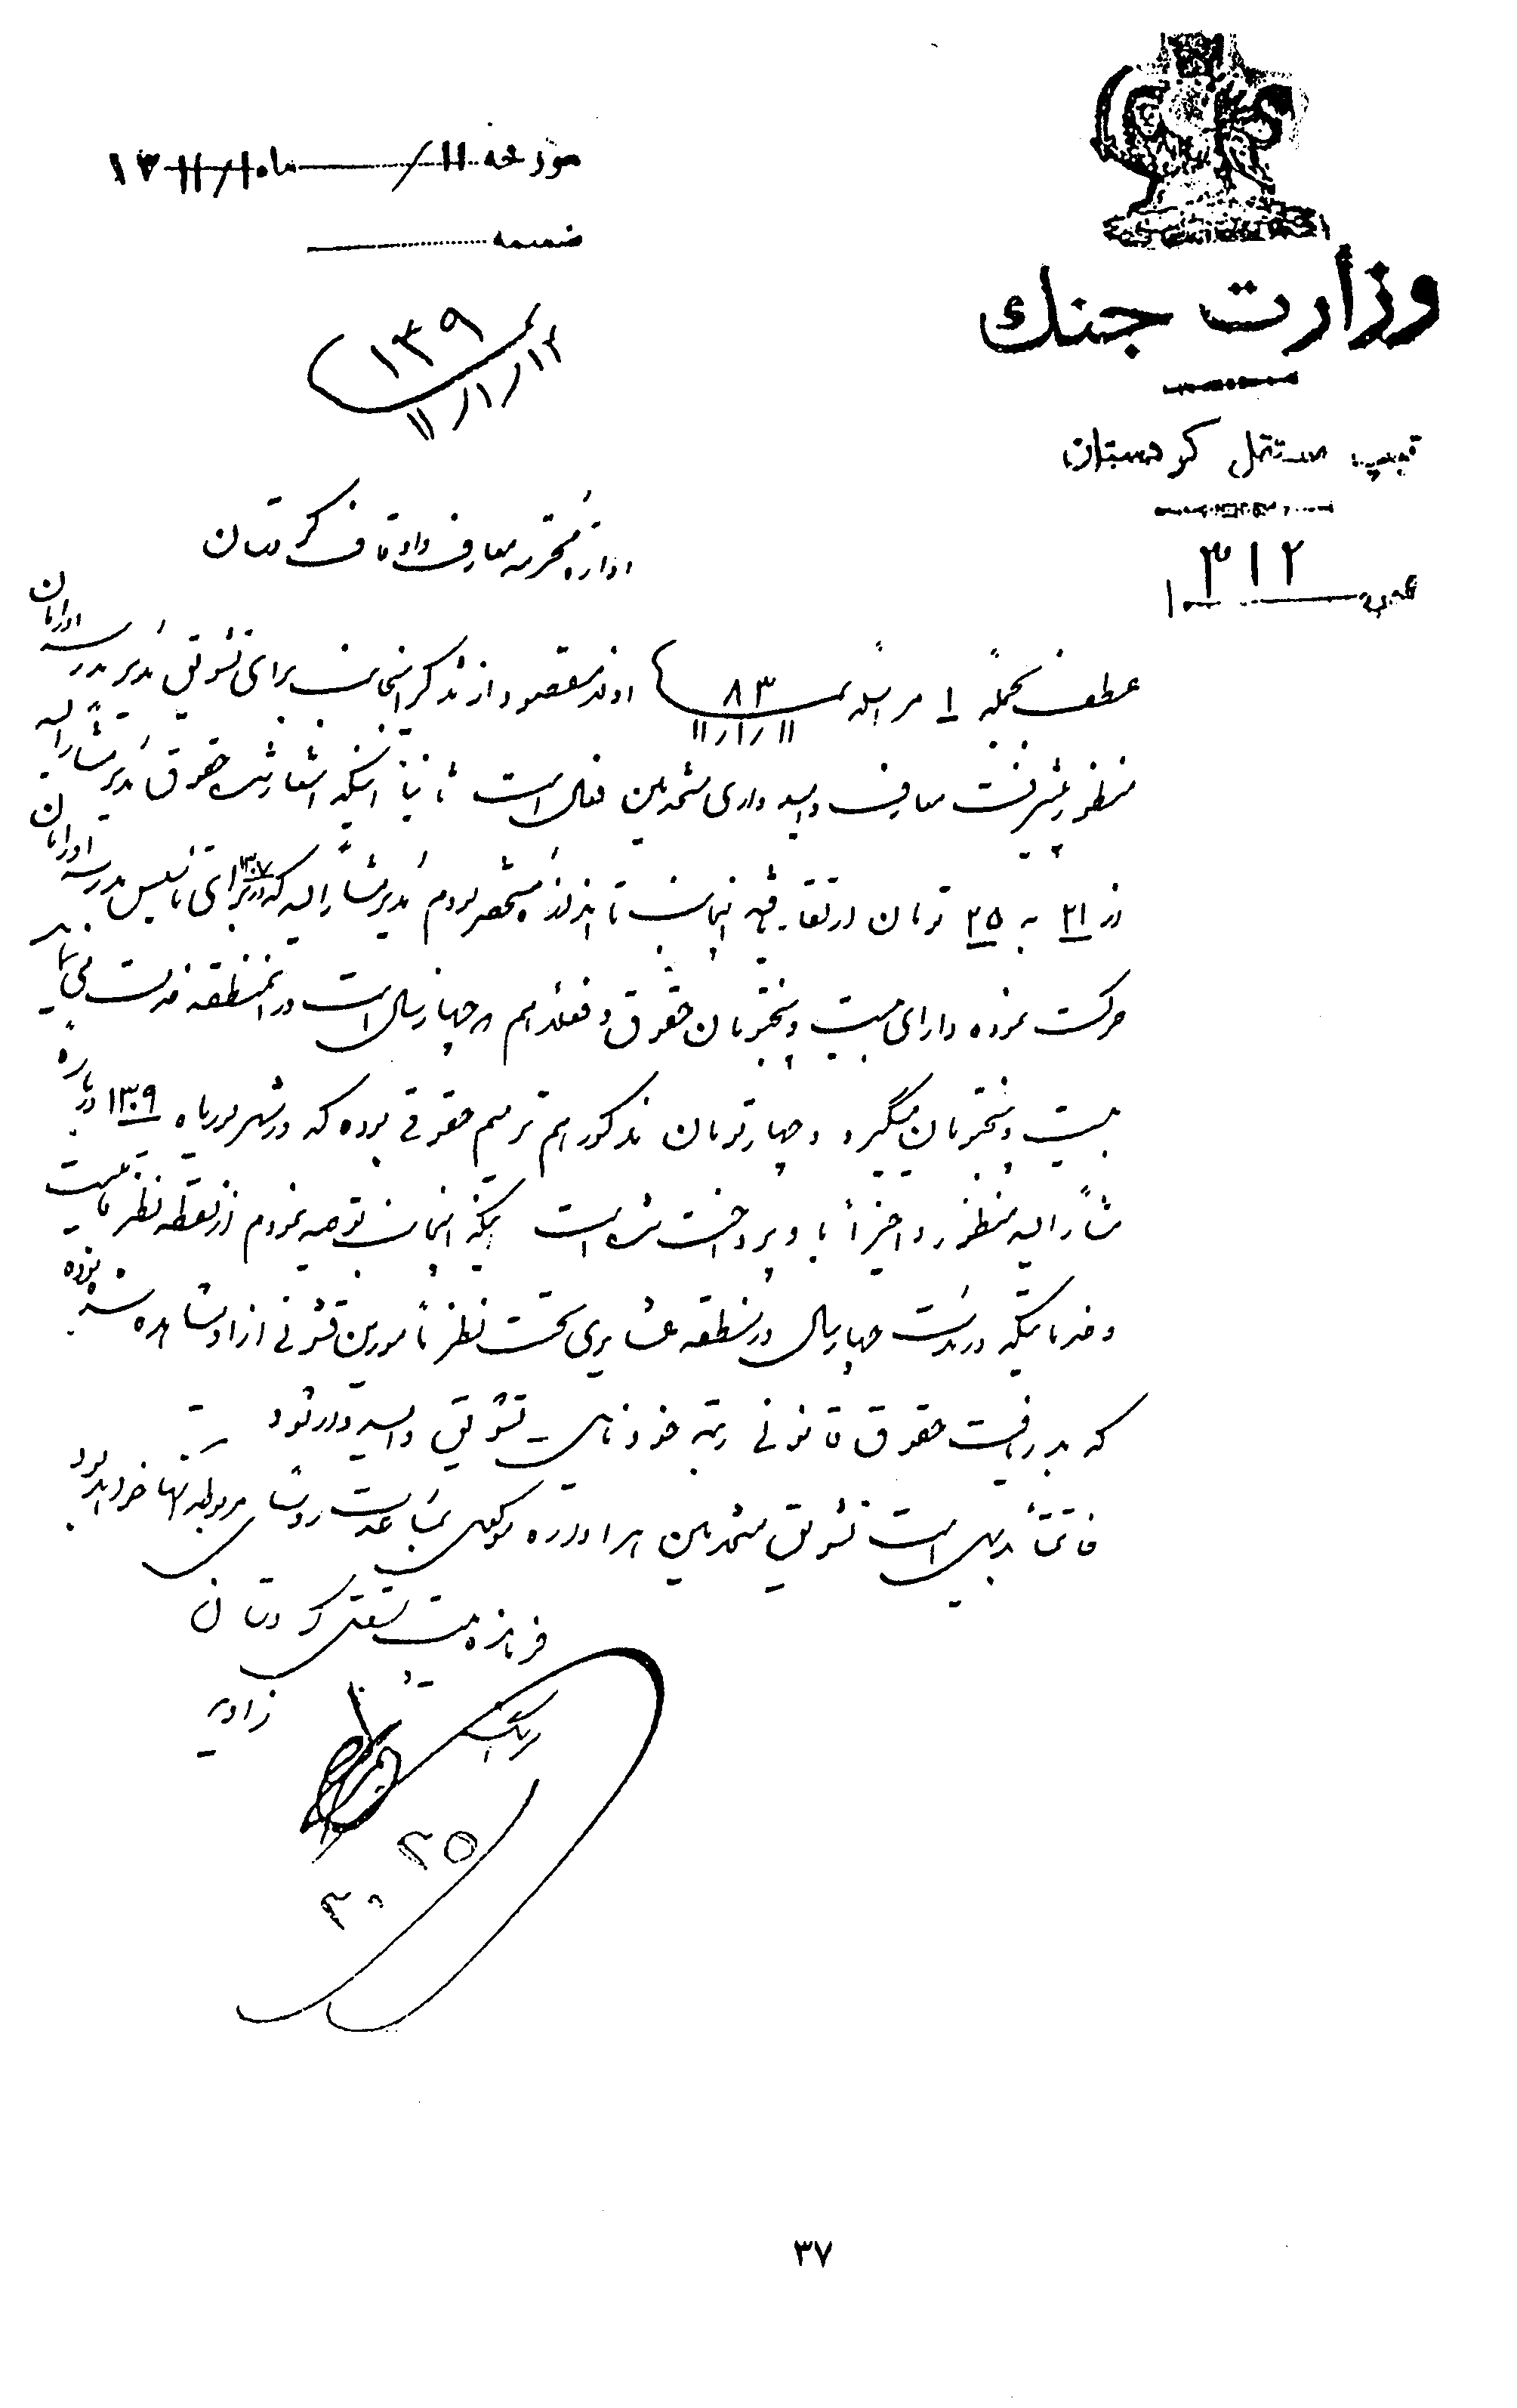 وزارت جنك
تیپ مستقل کردستان
نمره ۳۱۲
مورخه ۱۱ / ماه ۱ / ۱۳۱۱
ضمیمه
نمره ۱۳۹
۱۱/۱/۱۲
اداره محترمه معارف و اوقاف کردستان
عطف بجمله ۱ مراسله نمره ۸۳ ۱۱/۱/۱۱ اولاً مقصود از تذکر اینجانب برای تشویق مدیر مدرسه اورامان
منظور پیشرفت معارف و امیدواری متعلمین فعلی است ثانیاً اینکه اشعار شده حقوق مدیر مشارالیه
از ۲۱ به ۲۵ تومان ترقی اینجانب تا اندازه مستحضر بودم مدیر مشارالیه که در ۱۳۰۷ برای تأسیس مدرسه اورامان
حرکت نموده دارای بیست و پنجتومان حقوق و فعلاً هم چهار سال است در آنمنطقه خدمت می‌نماید
بیست و پنجتومان میگیرد و چهار تومان مذکور هم ترمیم حقوقی بوده که در شهریور ماه ۱۳۰۹ درباره
مشارالیه منظور و اخیراً باو پرداخت شده است اینکه اینجانب توصیه نمودم از نقطه نظر فعالیت
و خدماتیکه در مدت چهار سال در منطقه عشایری تحت نظر مأمورین قشونی از او مشاهده شده بوده
که بدریافت حقوق قانونی رتبه خود نایل تشویق و امیدوار شود
خاتمتاً بدیهی است تشویق متعلمین هر اداره موکول بمساعدت رؤسای مربوطه آنها خواهد بود
فرمانده تیپ مستقل کردستان
سرهنگ
۲۵
۳۰
۳۷